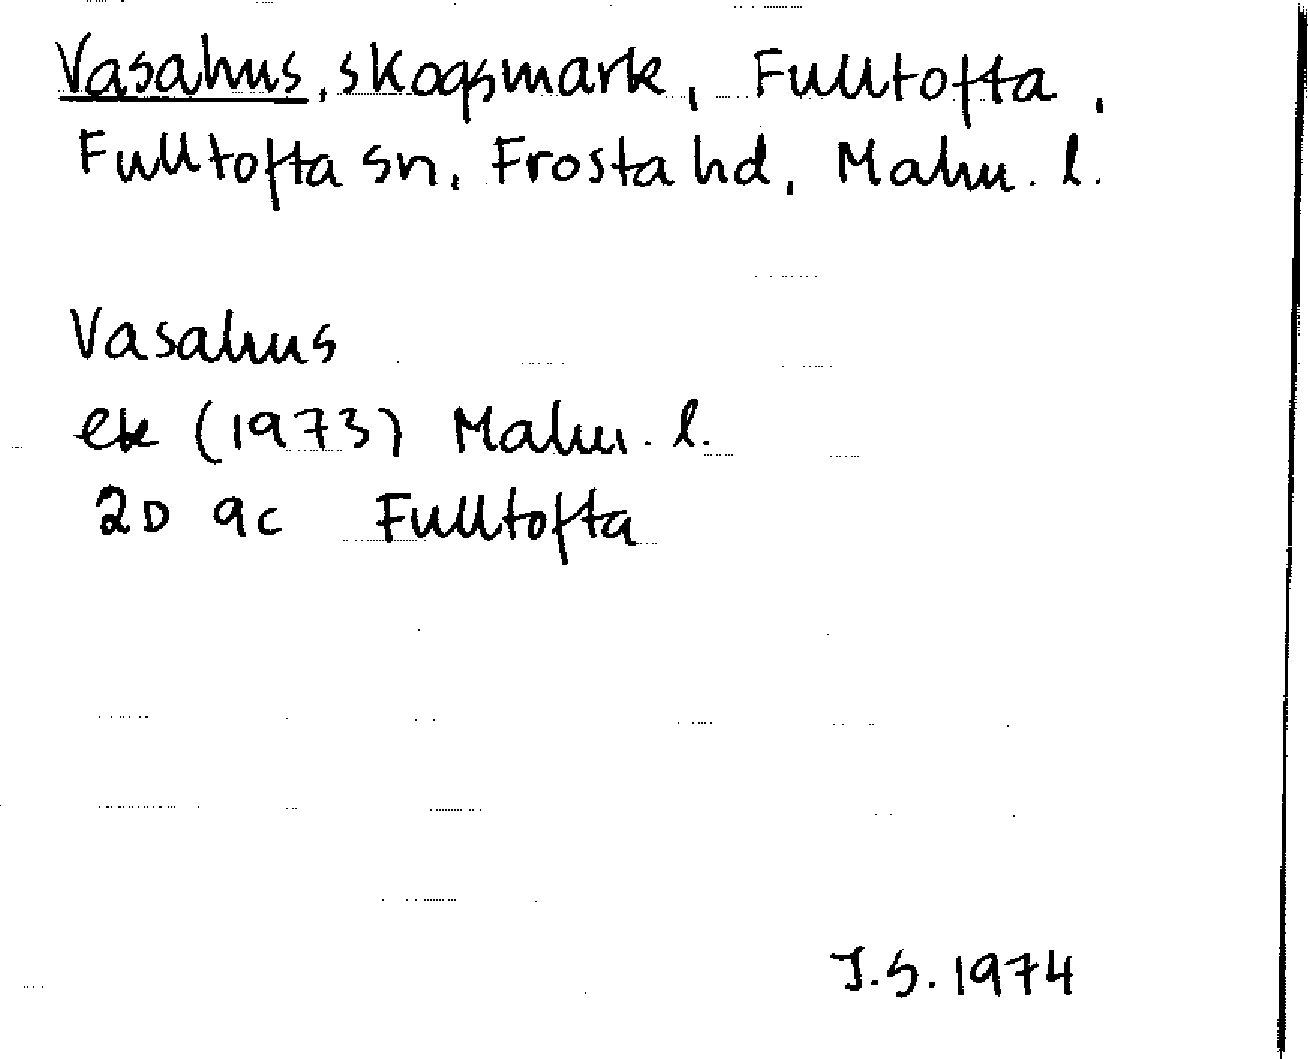 Vasahus, skogsmark, Fulltofta,
Fulltofta sn, Frosta hd, Malm. l.
Vasahus
ek (1973) Malm. l.
2D 9c Fulltofta
J.S. 1974